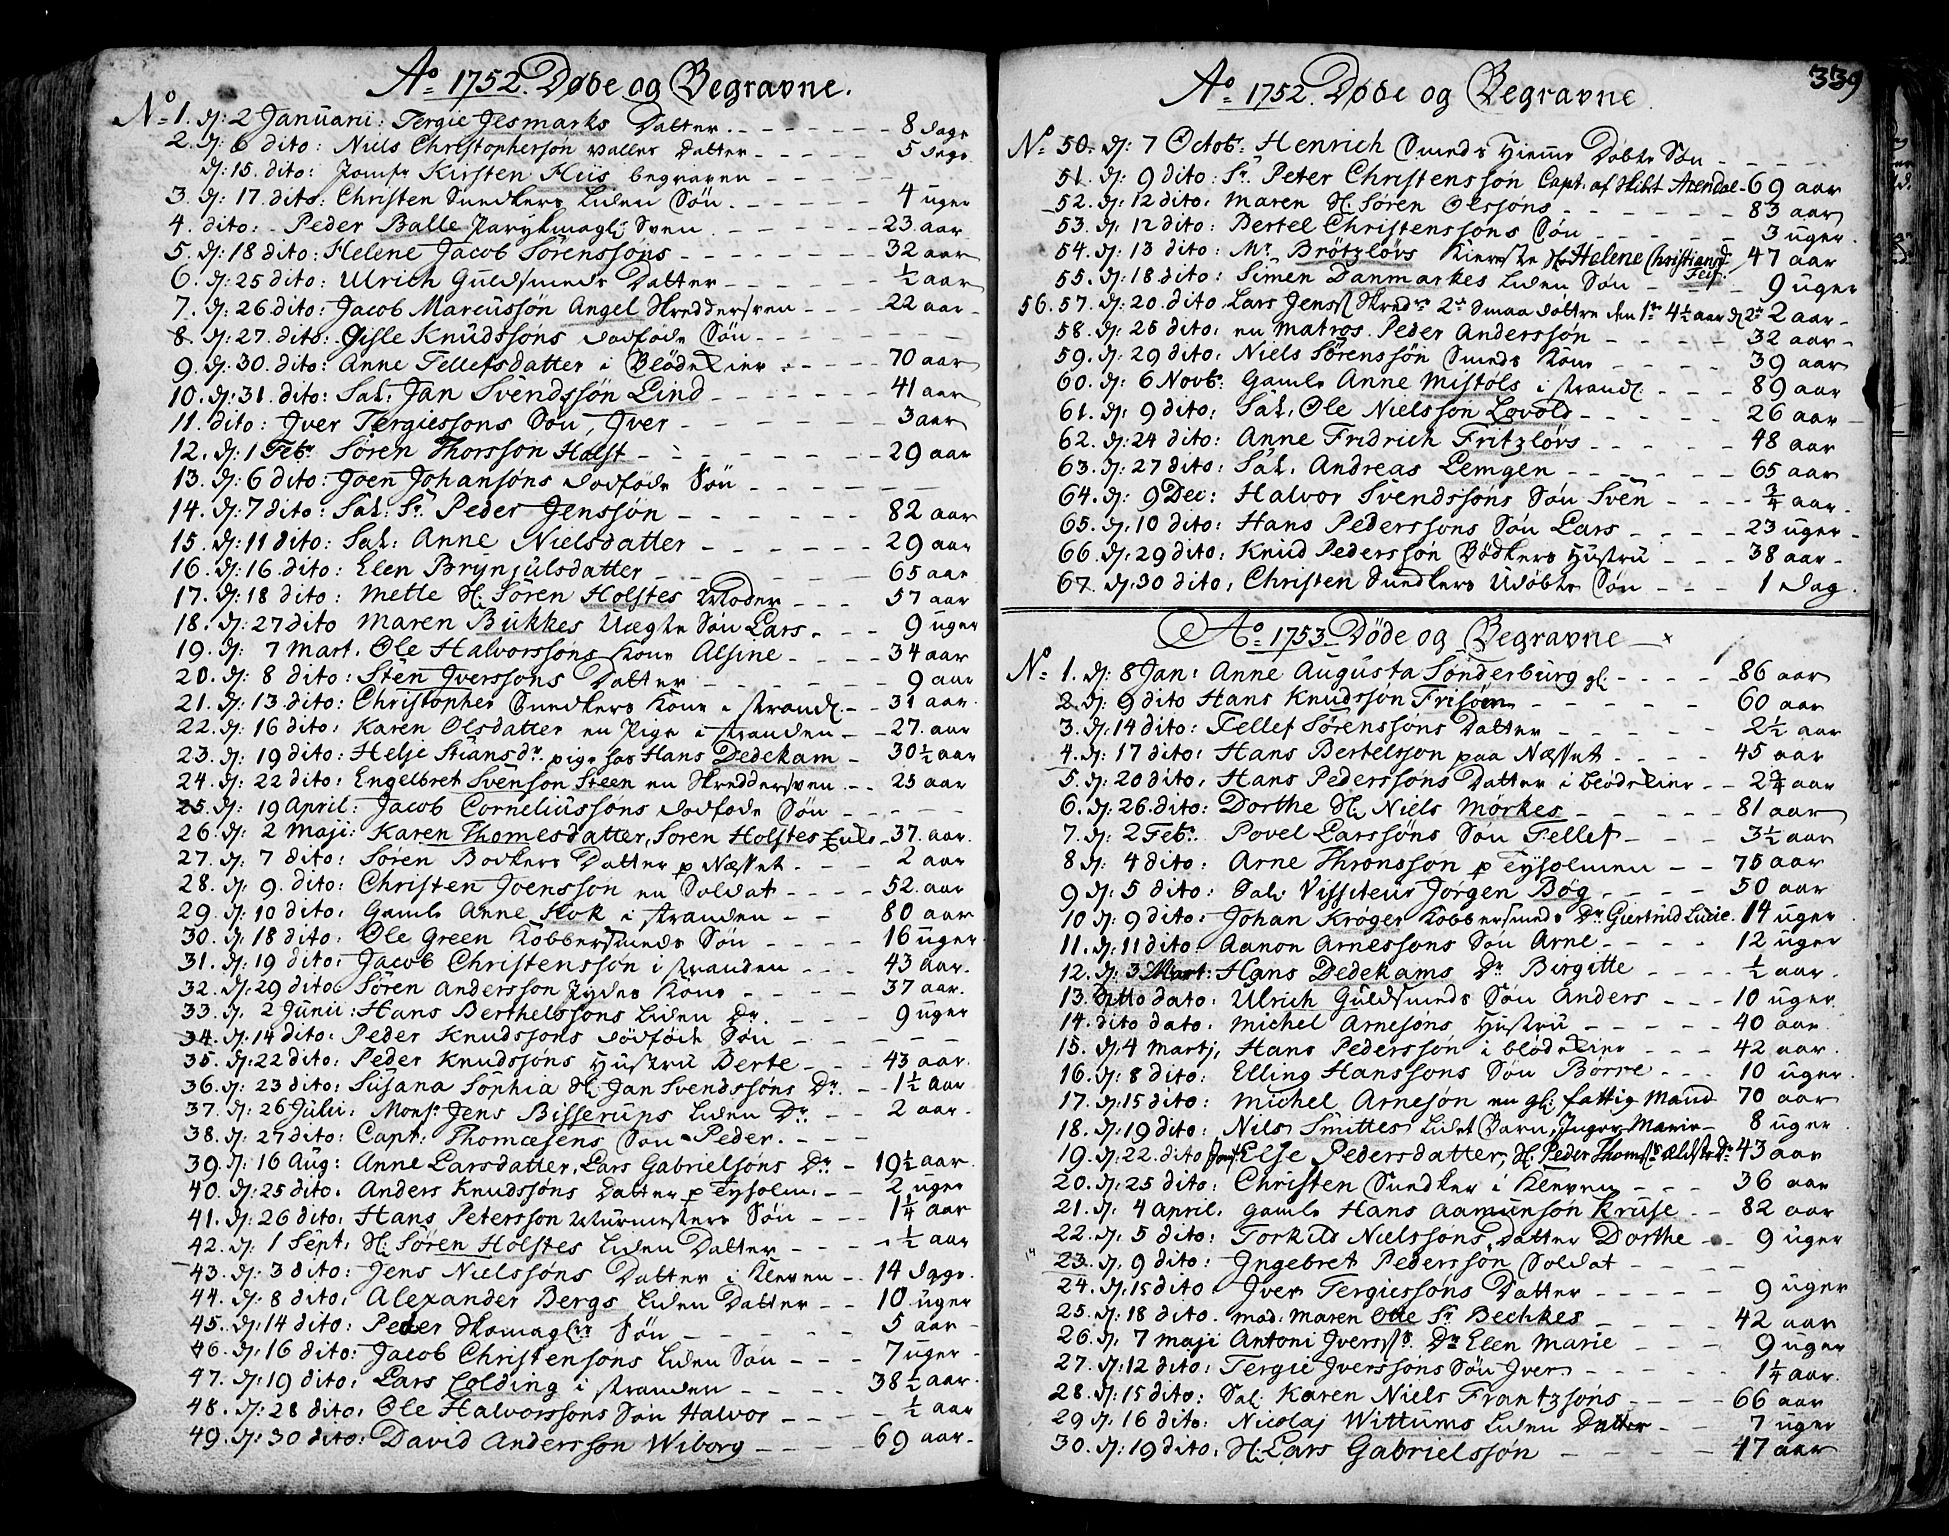 Ao 1752. Døde og Begravne.
No 1. d: 2 Januarii: Tergie Jesmarks Datter. 8 dage
2. d: 6 dito: Niels Christophersøn Valles Datter 5 dage
d: 15. dito: Jomfr Kirsten Heis begraven
3. d: 17 dito: Christen Snedkers Liden Søn. 4 uger
4. dito: Peder Balle Parykmag: Sven. 23 aar
5. d: 18 dito: Helene Jacob Sørenssøns 32 aar
6. d: 25 dito: Ulrich Guldsmeds Datter ½ aar
7. d: 26 dito: Jacob Marcussøn Angel Skreddersven 22 aar
8. d: 27 dito: Gisle Knudssøns dødføde Søn
9. d: 30. dito: Anne Tellefsdatter i Blødekier 70 aar
10. d: 31. dito: Sal: Jan Svendssøn Lind 41 aar
11. dito: Iver Tergiessøns Søn, Iver 3 aar
12. d: 1 Febr Søren Thorssøn Holst 29 aar
13. d: 6 dito: Joen Johansøns dødføde Søn
14. d: 7 dito: Sal: Sr Peder Jenssøn 82 aar
15. d: 11 dito: Sal: Anne Nielsdatter 29 aar
16. d: 16. dito: Elen Brynjulsdatter 65 aar
17. d: 18 dito: Mette Sl: Søren Holstes Moder 57 aar
18. d: 27 dito Maren Bukkes Uægte Søn Lars. 9 uger
19. d: 7 Mart. Ole Halvorssøns Kone Alsine 34 aar
20. d: 8 dito: Sten Iverssøns Datter 9 aar
21. d: 13 dito: Christopher Snedkers Kone i Strand: 31 aar
22. d: 16 dito: Karen Olsdatter en Pige i Stranden 27. aar
23. d: 19 dito: Helje Stiansdr pige hos Hans Dedekam 30½ aar
24. d: 22 dito: Engelbret Svenson Steen en Skreddersven 25 aar
25. d: 19 April: Jacob Corneliussøns dødføde Søn
26. d: 2 Maji: Karen Thomesdatter, Søren Holstes Enke 37. aar
27. d: 7 dito: Søren Bødkers Datter p Næsset. 2 aar
28. d: 9. dito: Christen Joenssøn en Soldat 52. aar
29. d: 10 dito: Gamle Anne Kok i Stranden 80 aar
30. d: 18 dito: Ole Green Kobbersmeds Søn 16 uger
31. d: 19 dito: Jacob Christenssøn i Stranden 43 aar.
32. d: 29 dito: Søren Anderssøn Jydes Kone 37 aar.
33. d. 2 Junii: Hans Berthelssøns Liden Dr. 9 uger
34. d: 14 dito: Peder Knudssøns dødføde Søn
35. d: 22 dito: Peder Knudssøns Hustru Berte 43 aar.
36. d: 23 dito: Susana Sophia Sl: Jan Svendssøns Dr. 1½ aar
37. d: 26 Julii: Monsr Jens Bisserups Liden Dr. 2 aar.
38. d: 27 dito: Capt: Thomæsens Søn Peder.
39. d: 16 Aug: Anne Larsdatter, Lars Gabrielsøns Dr 19½ aar
40. d: 25 dito: Anders Knudssøns Datter p Tysolm: 2 uger
41. d: 26 dito: Hans Peterssøn Murmesters Søn 1¼ aar
42. d: 1 Sept: Sl: Søren Holstes Liden Datter 1½ aar
43. d: 3 dito: Jens Nielssøns Datter i Kleven 14 dage
44. d: 8 dito: Alexander Bergs Liden Datter 10 uger
45. d: 14 dito: Peder Skomagers Søn 5 aar
46. d: 16 dito: Jacob Christensøns Liden Søn 7 uger
47. d: 19 dito: Lars Colding i Stranden 38½ aar.
48. d: 28 dito: Ole Halvorssøns Søn Halvor ½ aar
49. d: 30 dito: David Anderssøn Wiborg 69 aar.
339
Ao 1752. Døde og Begravne
No 50. d: 7 Octobr. Henrich Smeds Hieme Døbte Søn
51. d: 9 dito: Sr. Peter Christenssøn Capt. af Skibt Arendal 69 aar
52. d: 12 dito: Maren Sl: Søren Olssøns 83 aar
53. d: 12 dito: Bertel Christenssøns Søn 3 uger.
54. d: 13 dito: Mr. Brøtzløvs Kiereste Helene Christiansd Feif 47 aar
55. d: 18 dito: Simen Danmarkes Liden Søn 9 uger
56. 57. d: 20. dito Lars Jenss Skredrs 2de Smaa døttre den 1te 4½ aar d 2den 2 aar
58. d: 25 dito: en Matros Peder Anderssøn 32 aar
59. d: 29 dito: Niels Sørenssøn Smeds Kone 39 aar
60. d: 6 Novb: Gamle Anne Mistøls i Strand: 89 aar
61. d: 9 dito: Sal: Ole Nielssøn Lovold 26 aar
62. d: 24 dito: Anne Fridrich Fritzløvs 48 aar
63. d: 27 dito: Sal. Andreas Lemgen 65 aar
64. d: 9 Dec: Halvor Svendssøns Søn Sven ¾ aar
65. d: 10 dito: Hans Pederssøns Søn Lars 23 uger
66. d: 29 dito: Knud Pederssøn Bødkers Hustru 38 aar
67. d: 30 dito: Christen Snedkers Udøbte Søn 1 Dag.
Ao 1753. Døde og Begravne
No 1. d: 8 Jan: Anne Augusta Sønderburg gl: 86 aar
2. d: 9 dito Hans Knudssøn Frisøen 60 aar
3. d: 14 dito: Tellef Sørenssøns Datter 2½ aar
4. d: 17 dito: Hans Bertelssøn paa Næsset 45 aar
5. d: 20 dito: Hans Pederssøns Datter i Blødekier 2¾ aar
6. d: 26. dito: Dorthe Sl: Niels Mørkes 81 aar
7. d: 2 Febr. Povel Larssøns Søn Tellef 3½ aar
8 d: 4 dito: Arne Thronssøn p Tysolmen 75 aar
9 d: 5 dito: Sal: Vissiteur Jørgen Bøg 50 aar
10 d: 9 dito: Johan Krøger Kobbersmeds Dr. Giertrud Lucie. 14 uger
11. d: 11 dito: Aanon Arnessøns Søn Arne 12 uger
12. d: 3 Mart: Hans Dedekams Dr Birgitte ½ aar.
13. Ditto dato: Ulrich Guldsmeds Søn Anders 10 uger
14. dito dato: Michel Arnesøns Hustru 40 aar
15. d: 4 Martj, Hans Pederssøn i blødekier 42 aar.
16. d: 8 dito: Elling Hanssøns Søn Børre 10 uger
17. d: 15 dito: Michel Arnesøn en gl: fattig Mand 70 aar
18. d: 19 dito: Nils Smittes Lidet Barn, Inger Marie 8 uger
19. d: 22. dito Jomf Else Pedersdatter, Sl: Peder Thomss ældste Dr 43 aar
20. d: 25 dito: Christen Snedker i Kleven 36 aar
21. d: 4 april. gamle Hans Aamunsøn Kruse 82 aar
22. d: 5 dito: Torkild Nielssøns Datter Dorthe 9 uger
23. d: 9 dito: Ingebret Pederssøn Soldat
24. d: 15 dito Iver Tergiessøns Datter 9 uger
25. d: 18 dito. Mad. Maren Otte Sr Bechkes 42 aar
26. d: 7 Maji Antoni Iverss Dr Elen Marie 9 uger
27. d: 12 dito: Tergie Iverssøns Søn Iver 1¼ aar.
28. d: 15 dito: Sal: Karen Niels Frantzsøns 66 aar
29 d: 16 dito: Nicolaj Wittums Liden Datter 7 uger
30. d: 19 dito: Sl: Lars Gabrielssøn 47 aar